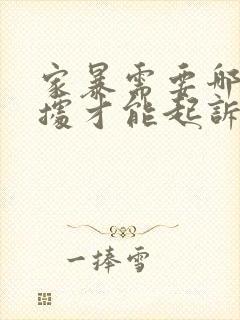 家暴需要哪
據才能起訴
一捧雪